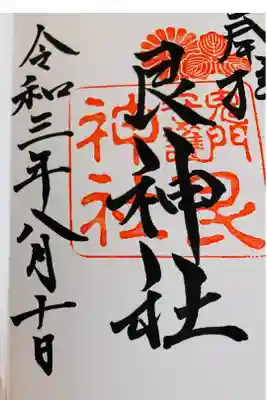 奉拝
艮神社
令和三年八月十日
鬼門
守護
艮
神社